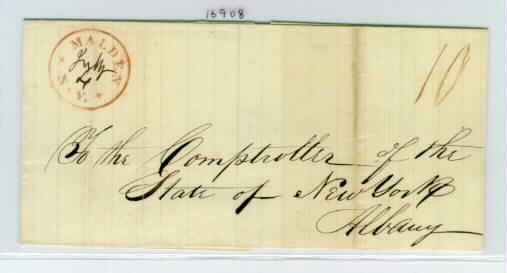 15908
MALDEN
N.Y.
July
4
10
To the Comptroller of the
State of New York
Albany